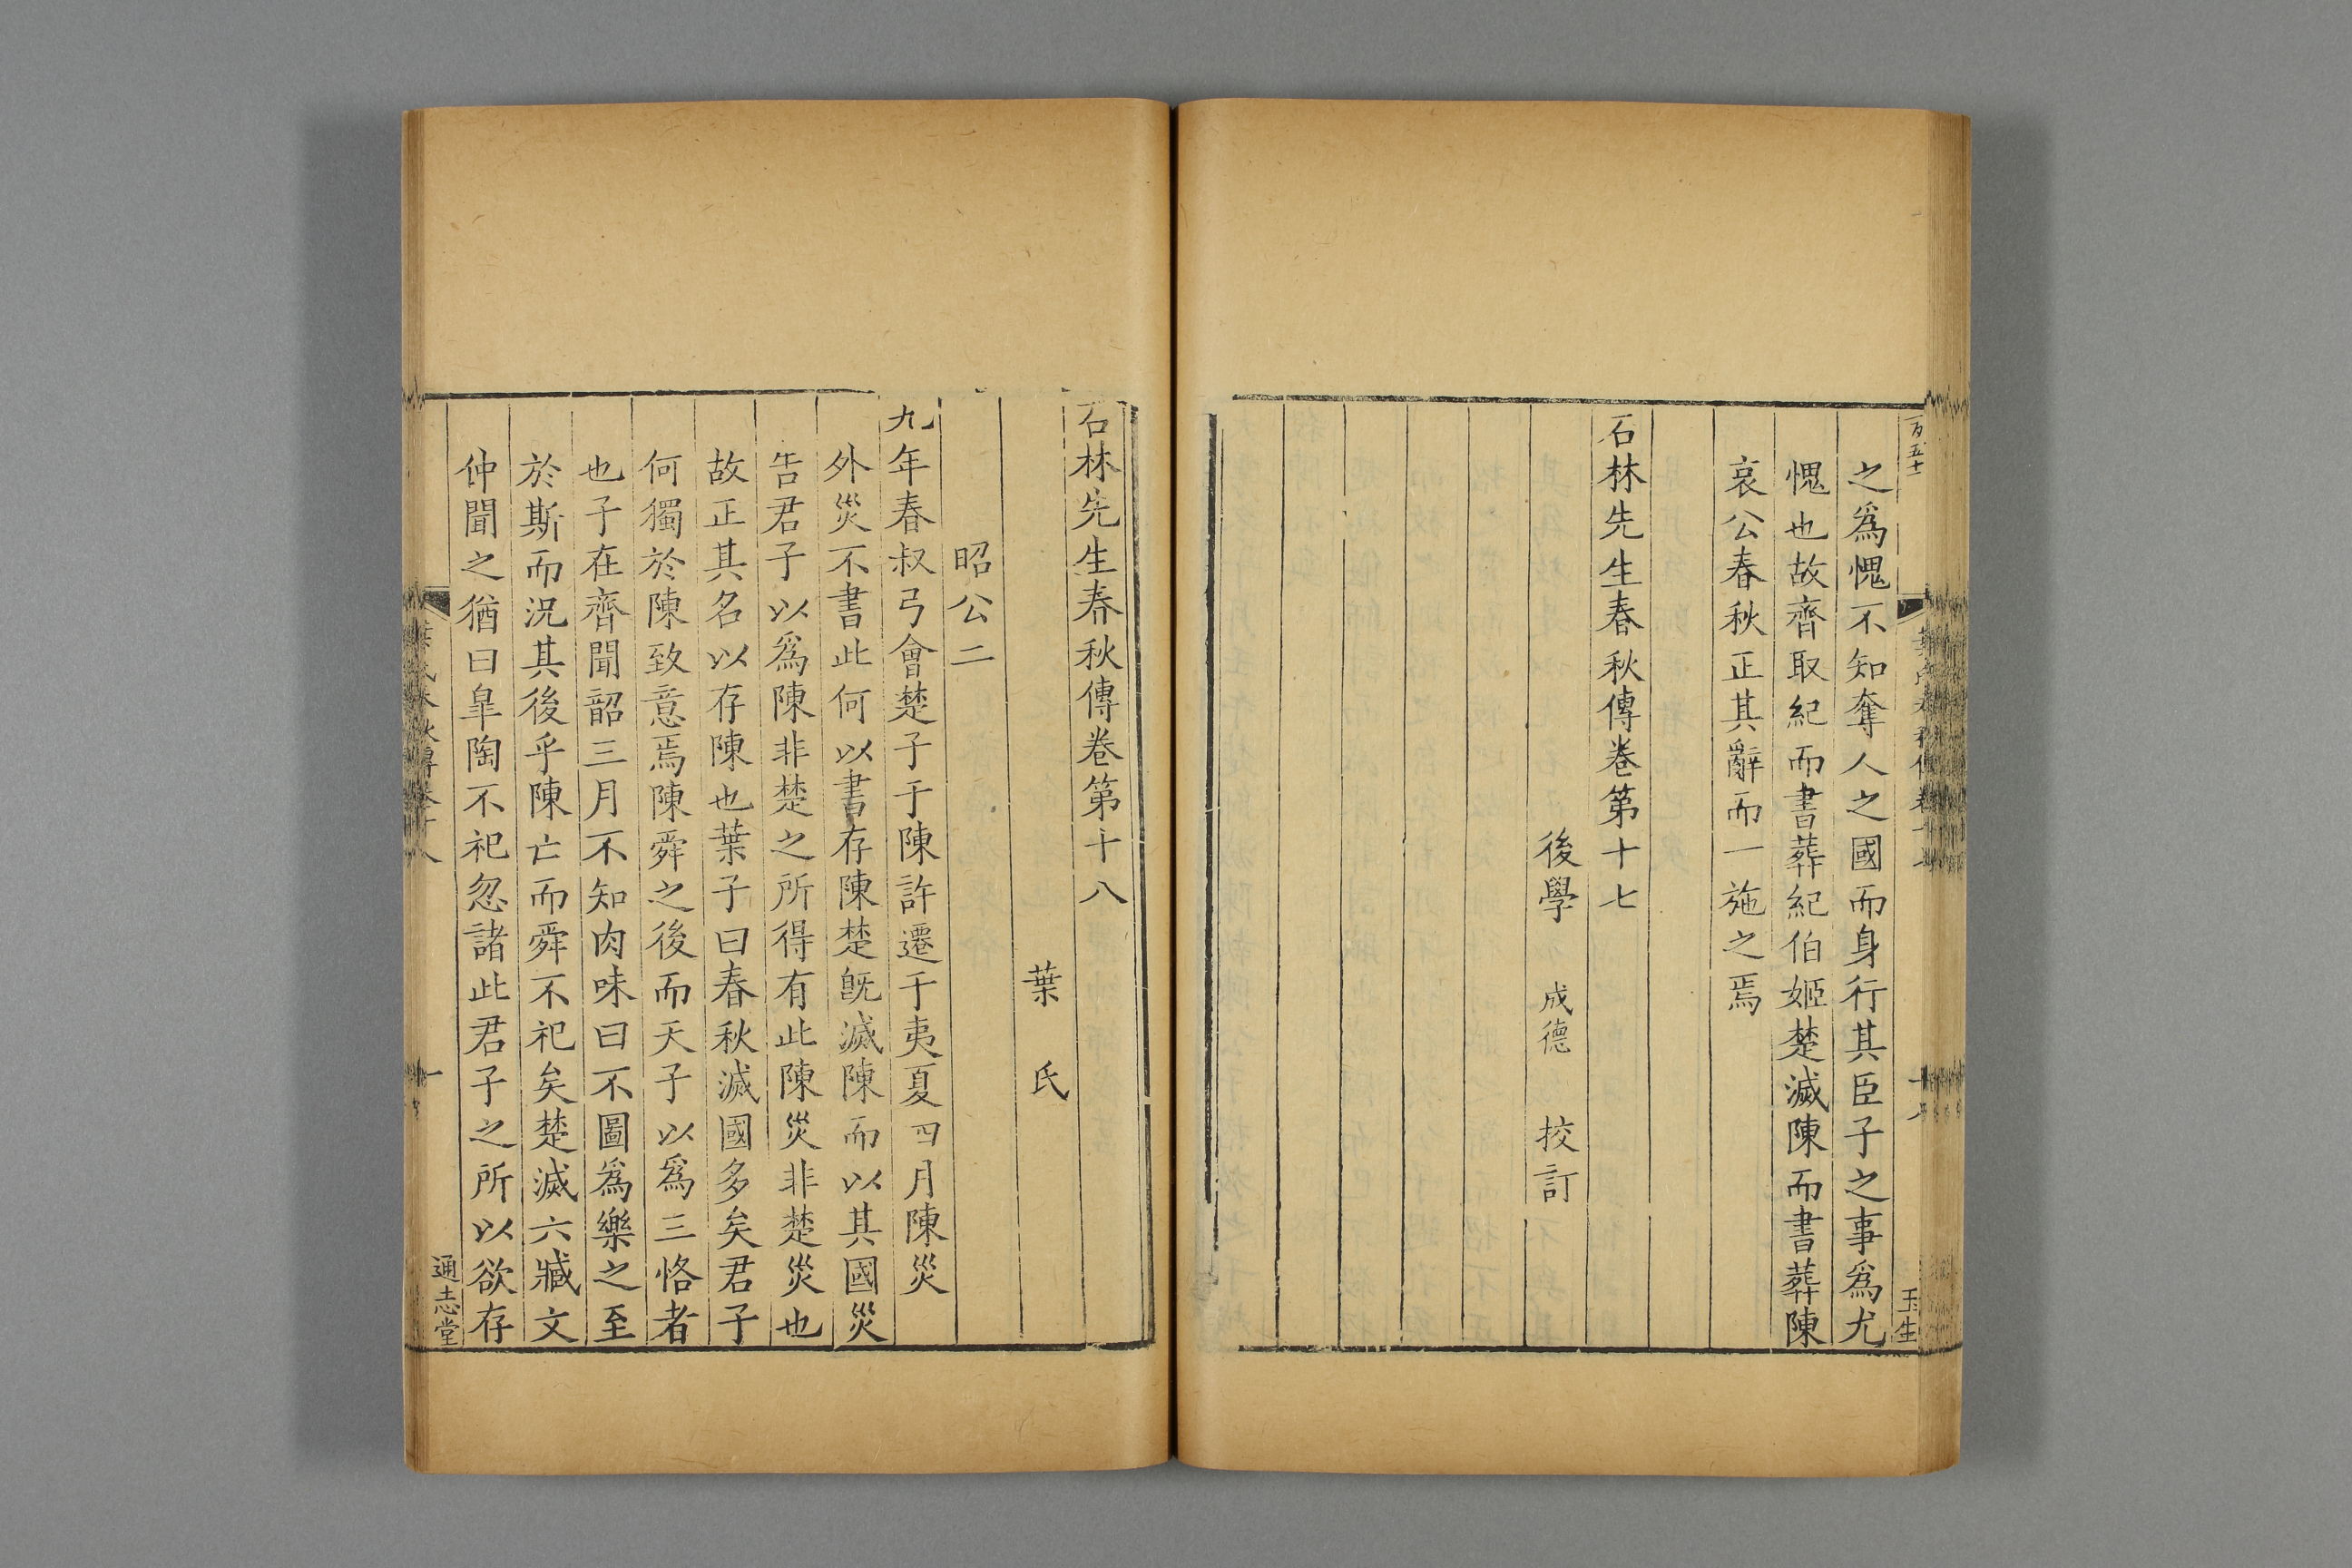 之爲愧不知奪人之國而身行其臣子之事爲尤
愧也故齊取紀而書葬紀伯姬楚滅陳而書葬陳
哀公春秋正其辭而一施之焉
石林先生春秋傳卷第十七
後學 成德 校訂
玉生
石林先生春秋傳卷第十八
葉氏
昭公二
九年春叔弓會楚子于陳許遷于夷夏四月陳災
外災不書此何以書存陳楚旣滅陳而以其國災
告君子以爲陳非楚之所得有此陳災非楚災也
故正其名以存陳也葉子曰春秋滅國多矣君子
何獨於陳致意焉陳舜之後而天子以爲三恪者
也子在齊聞韶三月不知肉味曰不圖爲樂之至
於斯而況其後乎陳亡而舜不祀矣楚滅六臧文
仲聞之猶曰臯陶不祀忽諸此君子之所以欲存
通志堂